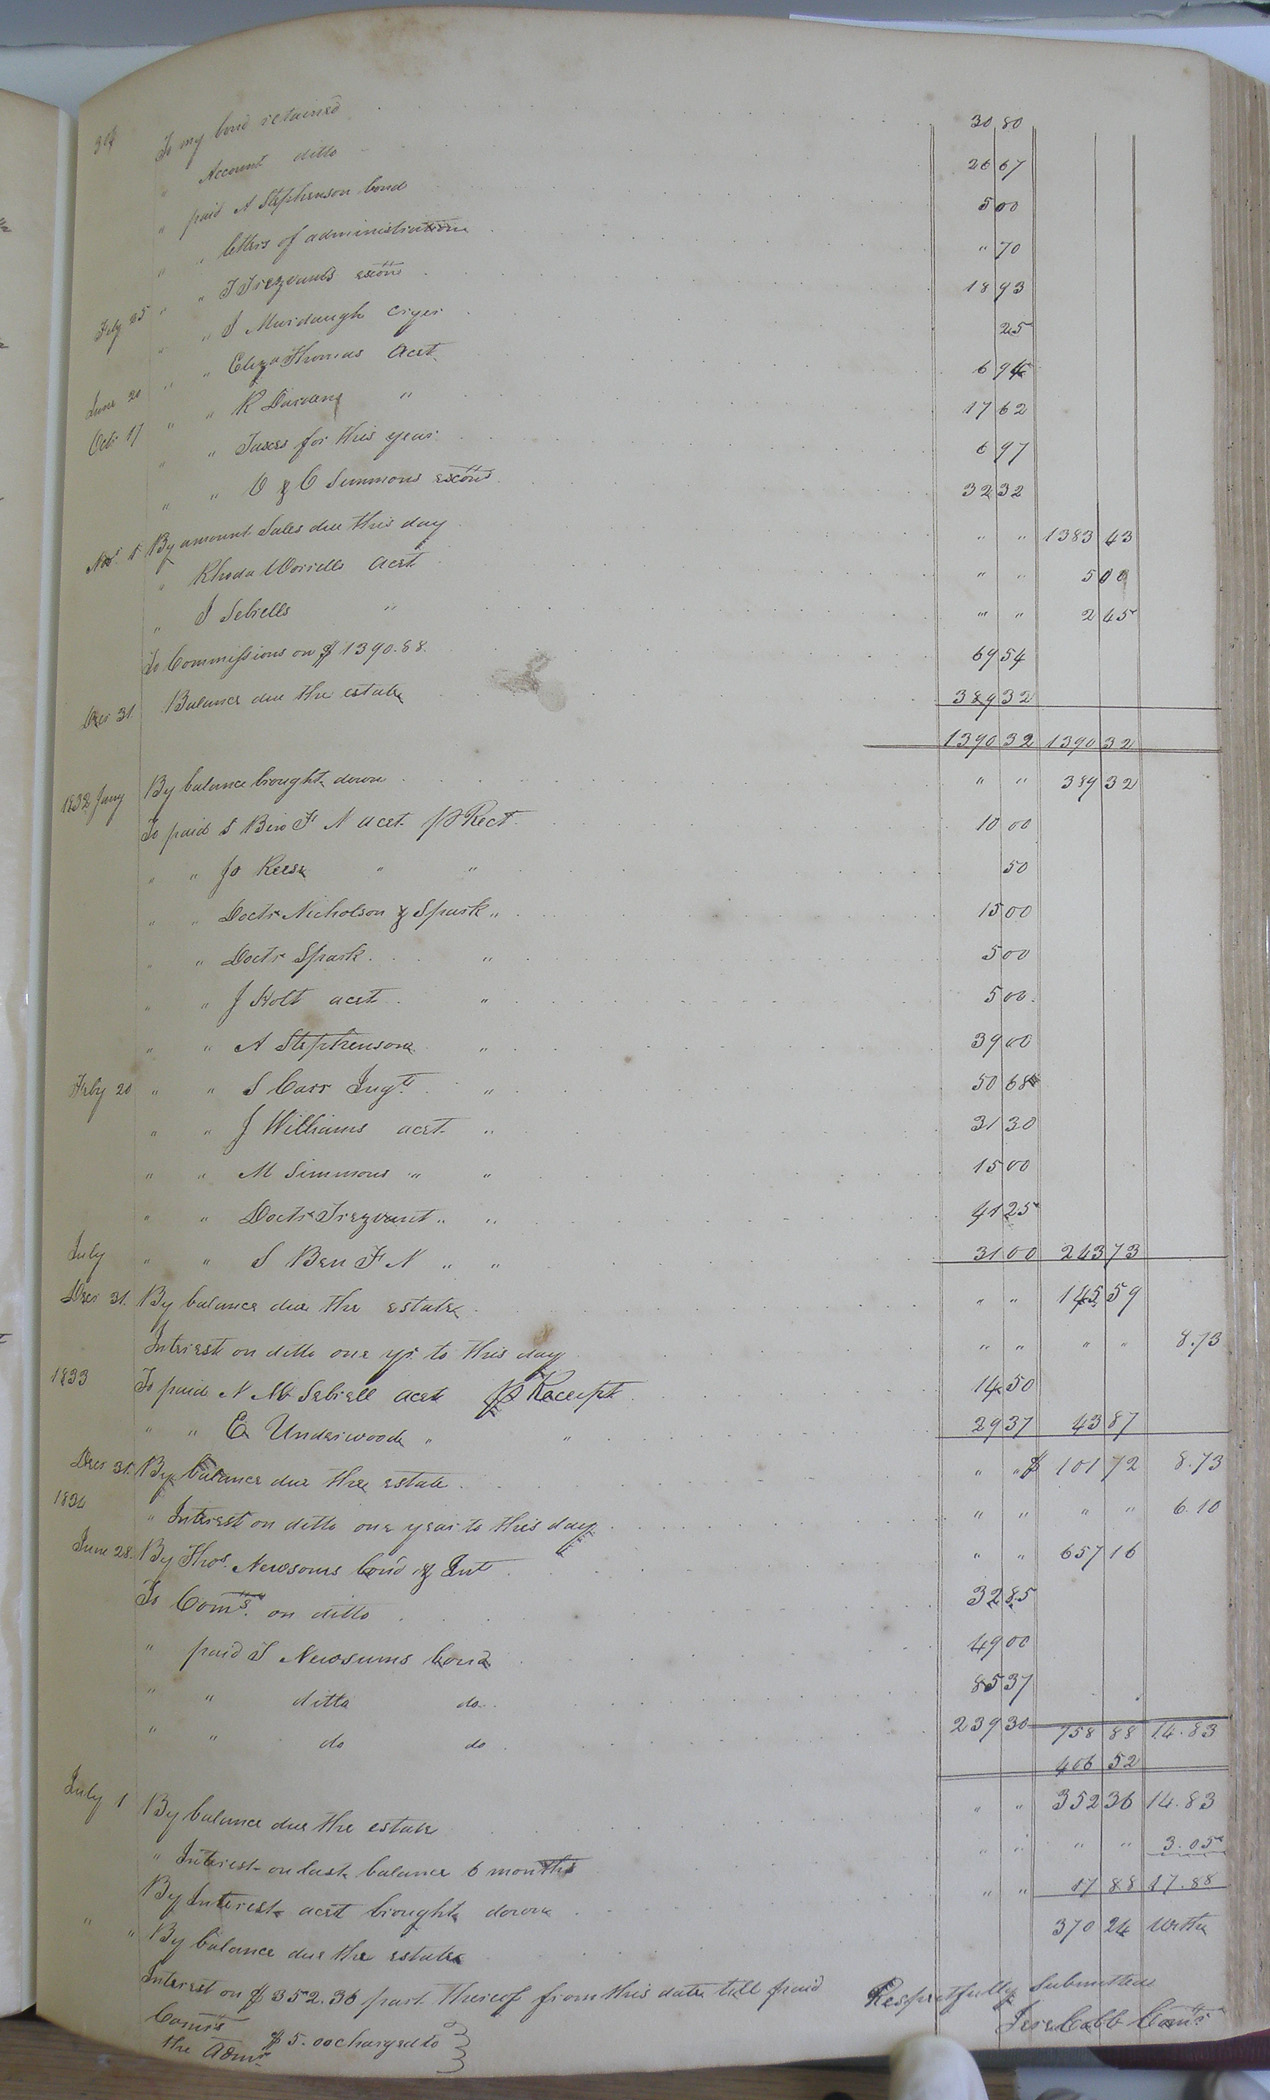 To my bond retained 30 80
" Account ditto 26 67
" paid A Stephenson bond 5 00
" " letters of administration " 70
" " T Trezvants exōns 18 93
Feby 25 " " J Murdaugh Cryer 25
" " Eliza Thomas acct 6 94
June 20 " " R Darden " 17 62
Octr 17 " " Taxes for this year 6 97
" " & C Simmons exōns 32 32
Novr 1 By amount Sales due this day " " 1383 43
" Rhoda Worrells acct " " 5 00
" J Sebrells " " " 2 45
To Commissions on $1390.88 69 54
Decr 31 Balance due the estate 389 32
1390 32 1390 32
1832 Jany By balance brought down " " 389 32
To paid S Ben F N acct pr Rect 10 00
" " Jo Reese " " 50
" " Doctr Nicholson & Spark " 15 00
" " Doctr Spark " 5 00
" " J Holt acct " 5 00
" " A Stephenson " 39 00
Feby 20 " " S Carr Jugt. " 50 68
" " J Williams acct " 31 30
" " M Simmons " " 15 00
" " Doctr Trezvant " " 41 25
July " " S Ben F N " " 31 00 243 73
Decr 31. By balance due the estate " " 145 59
Interest on ditto one yr. to this day " " " " 8.73
1833 To paid N M Sebrell acct pr Receipt 14 50
" " E Underwood " " 29 37 43 87
Decr 31. By balance due the estate " " $ 101 72 8.73
1834 " Interest on ditto one year to this day " " " " 6.10
June 28. By Thos. Newsoms bond & Int " " 657 16
To Coms. on ditto 32 85
" paid S Newsums bond 49 00
" " ditto do 85 37
" " do do 239 30 758 88 14.83
406 52
July 1 By balance due the estate " " 352 36 14.83
" Interest on last balance 6 months " " " " 3.05
By Interest acct brought down " " 17 88 17.88
" " By balance due the estate 370 24 with
Interest on $352.36 part thereof from this date till paid Respectfully Submitted
Comrs $5.00 charged to Jere Cobb Comr
the Admr.